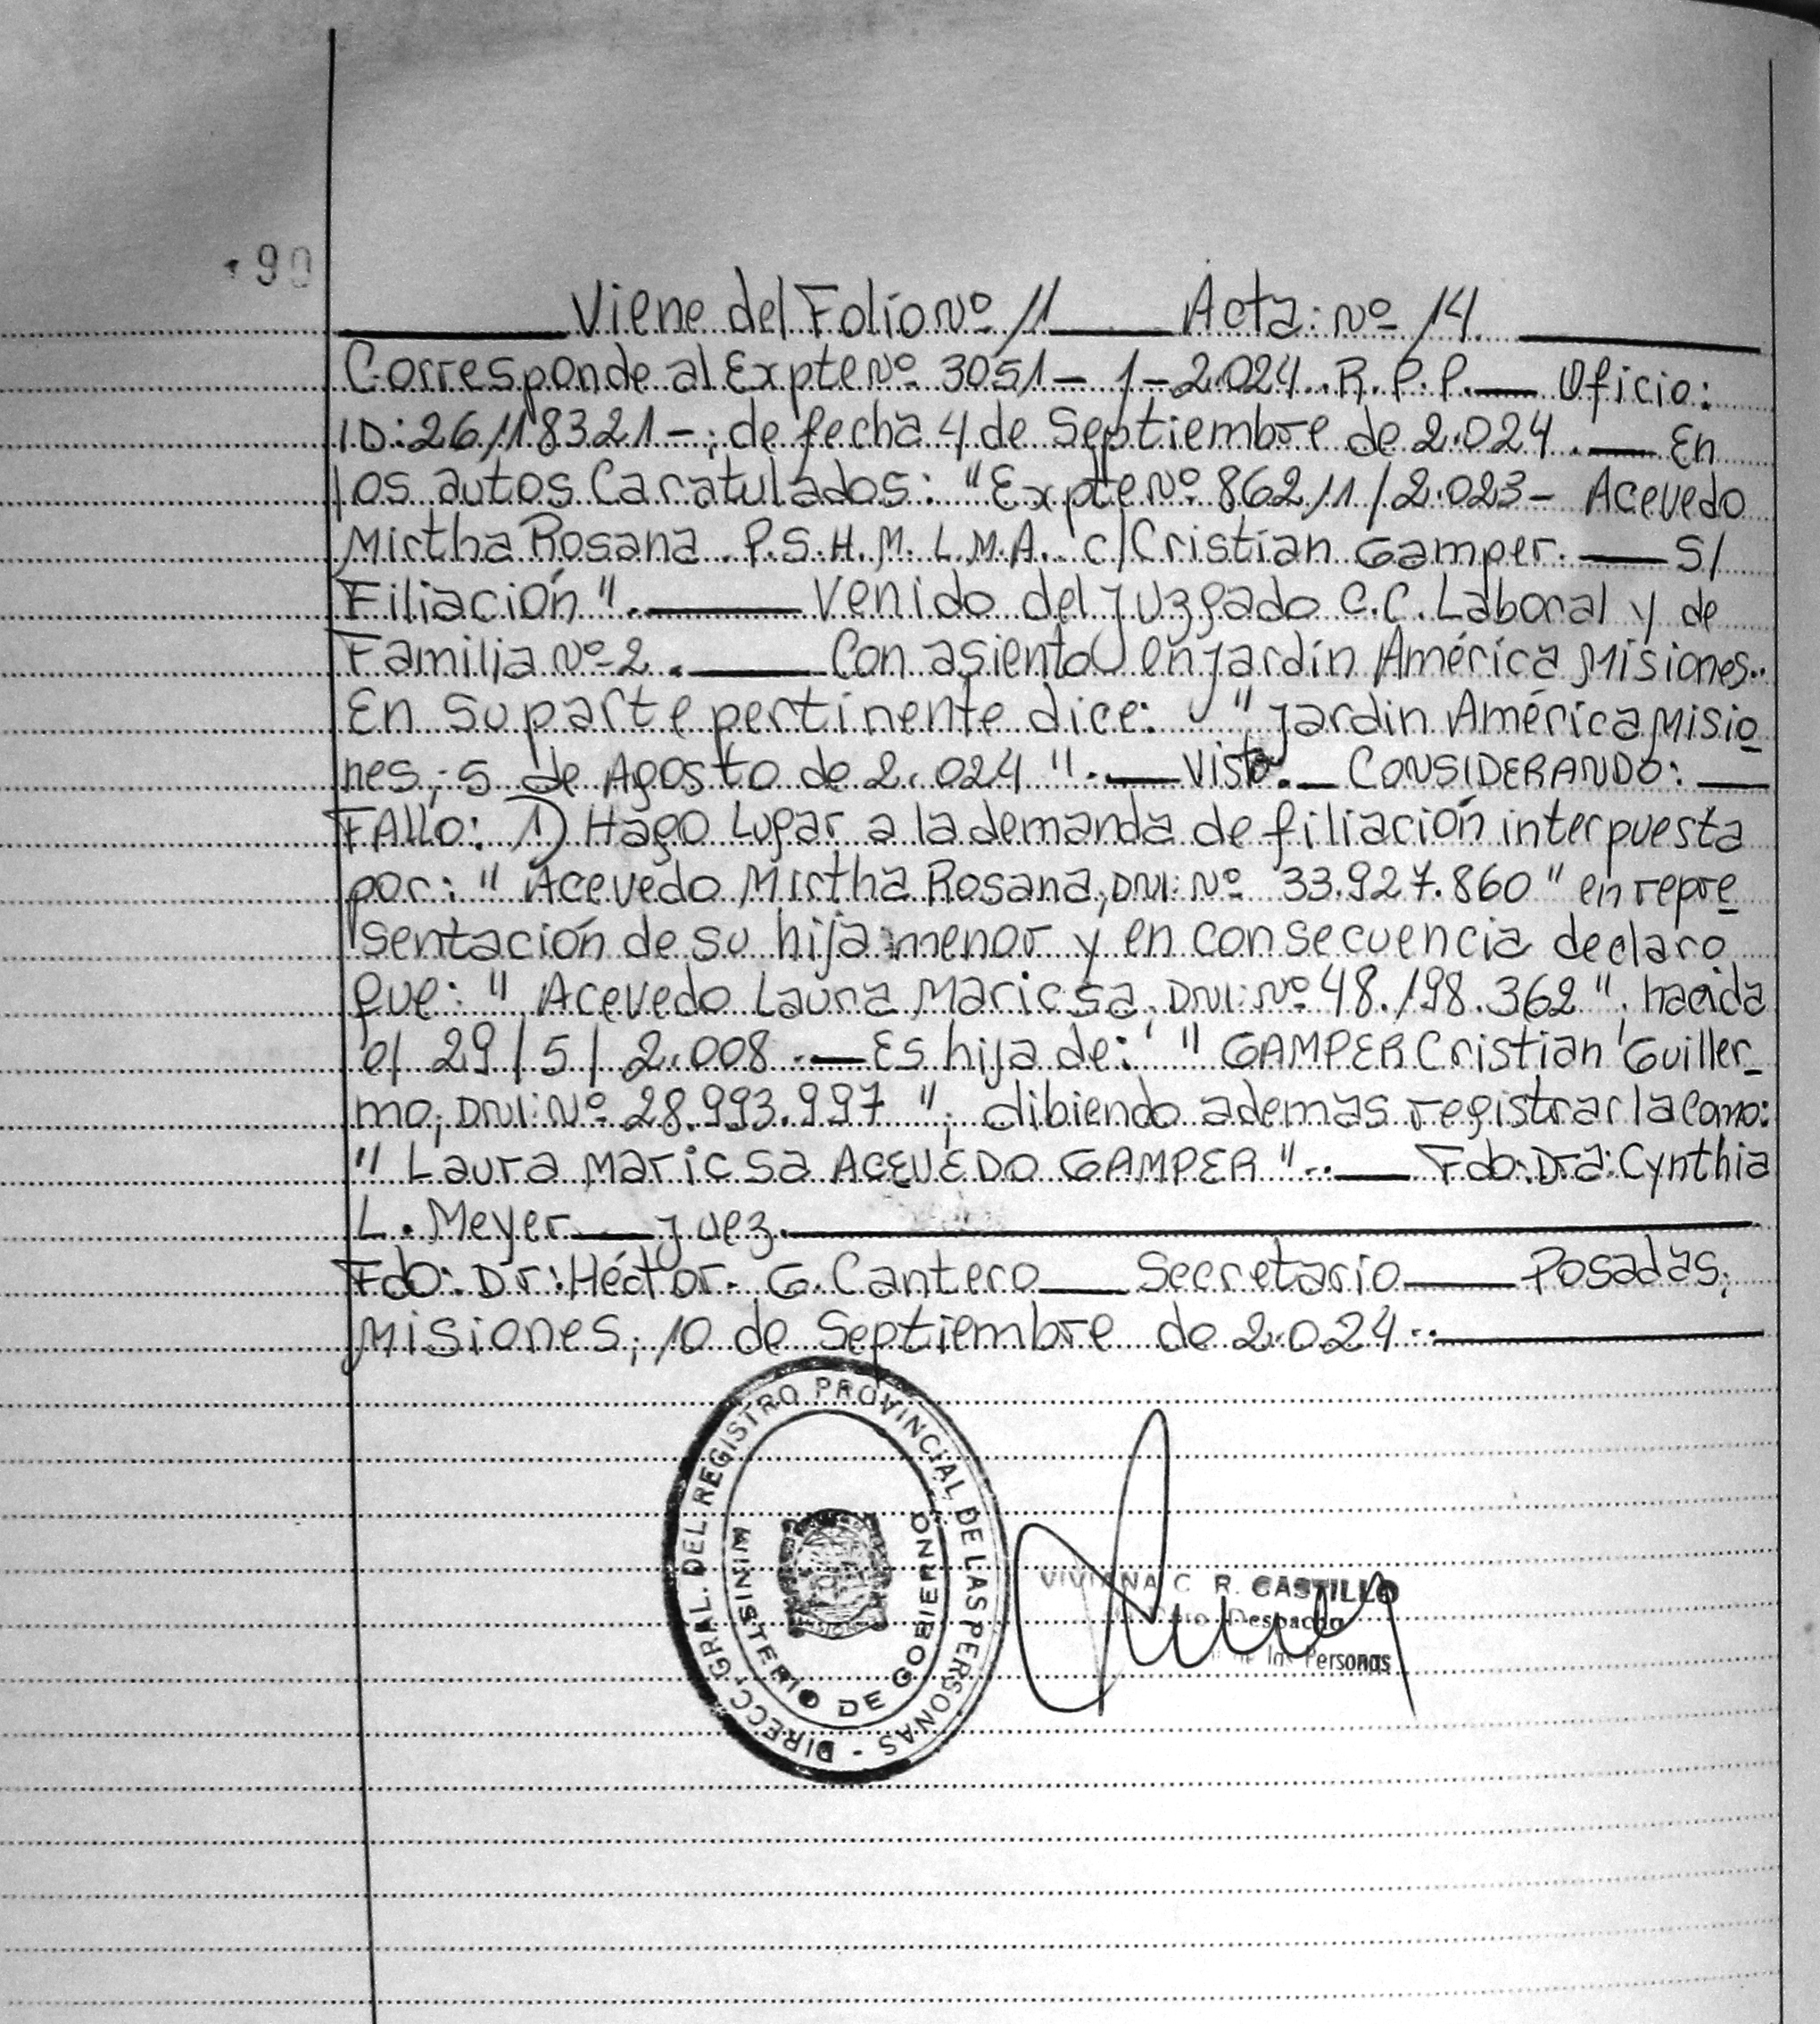 90
Viene del Folio Nº 11 Acta: Nº 14.
Corresponde al Expte Nº 3051-1-2.024. R.P.P. Oficio:
ID: 26118321-; de fecha 4 de Septiembre de 2.024. En
los autos Caratulados: "Expte Nº 86211/2.023- Acevedo
Mirtha Rosana P.S.H.M. L.M.A. c/Cristian Gamper. S/
Filiación". Venido del Juzgado C.C. Laboral y de
Familia Nº 2. Con asiento en Jardín América Misiones..
En su parte pertinente dice: "Jardín América Misio
nes, 5 de Agosto de 2.024". Visto. CONSIDERANDO:
FALLO: 1) Hago Lugar a la demanda de filiación interpuesta
por: "Acevedo Mirtha Rosana, DNI: Nº 33.927.860" en repre
sentación de su hija menor y en consecuencia declaro
que: "Acevedo Laura Maricsa, DNI: Nº 48.198.362", nacida
el 29/5/2.008. Es hija de: "GAMPER Cristian Guiller-
mo, DNI: Nº 28.993.997", dibiendo ademas registrarla como:
"Laura Maricsa ACEVEDO GAMPER".. Fdo: Dra: Cynthia
L. Meyer Juez.
Fdo: Dr: Héctor. G. Cantero Secretario Posadas,
Misiones, 10 de Septiembre de 2.024..
DIRECC. GRAL. DEL REGISTRO PROVINCIAL DE LAS PERSONAS -
MINISTERIO DE GOBIERNO
VIVIANA C. R. CASTILLO
Despacho
de las Personas